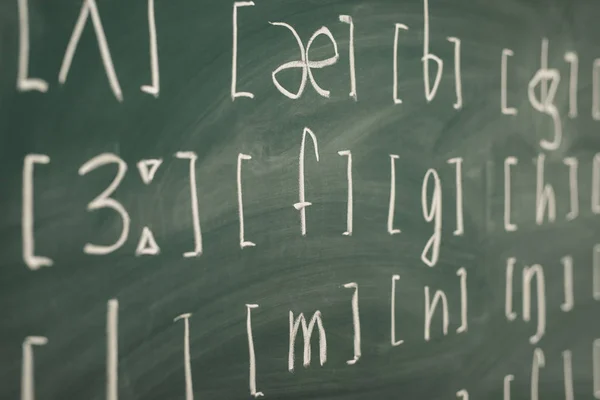 [ʌ] [æ] [b] [ʤ]
[ɜː] [f] [g] [h]
[l] [m] [n] [ŋ]